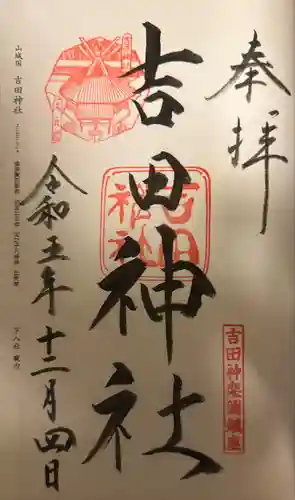 奉拝
吉田神社
吉田神社
吉田神楽岡鎮座
令和五年十二月四日
山城国 吉田神社